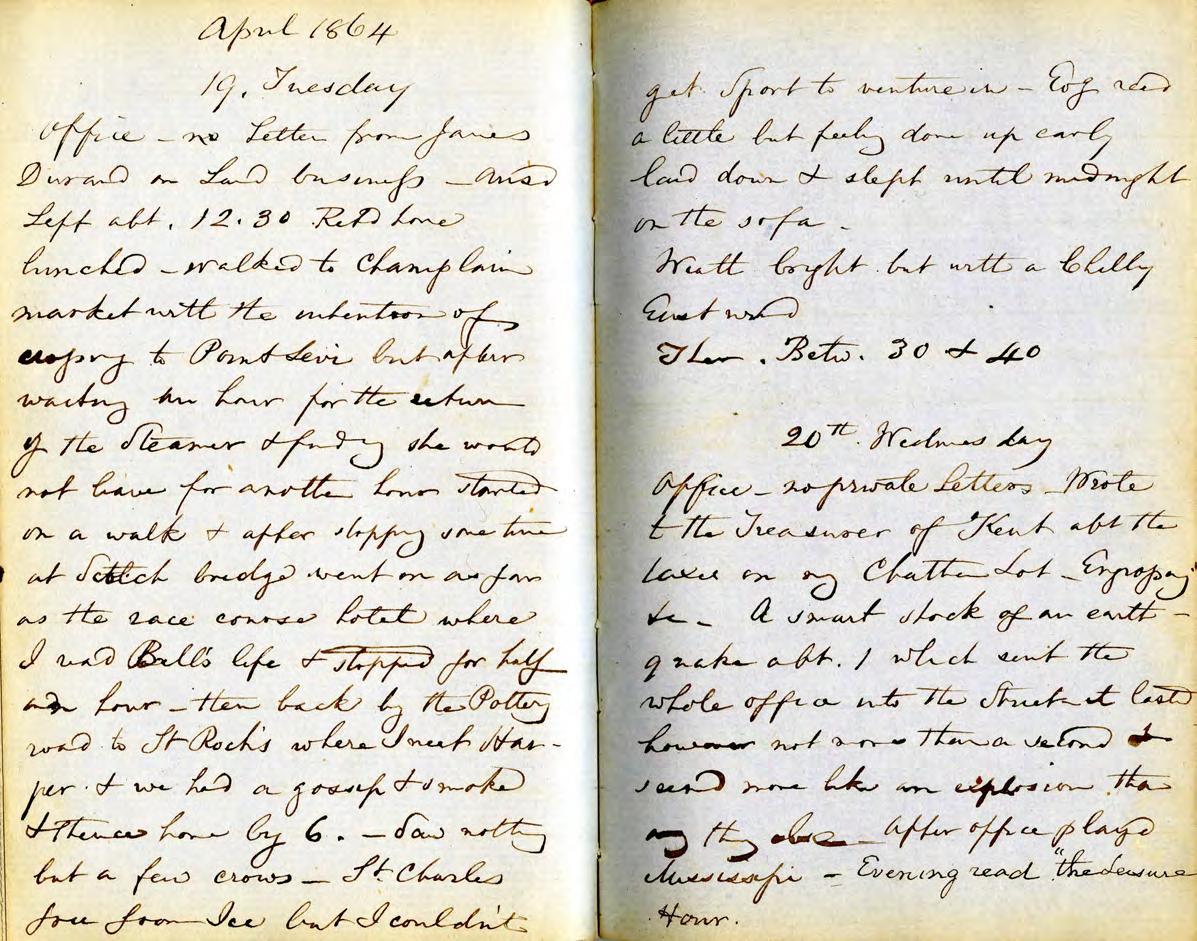 April 1864
19. Tuesday
Office - no Letter from James
Durand on Land business -
Left abt. 12.30 Retd home
lunched - walked to Champlain
market with the intention of
crossing to Point Levi but after
waiting an hour for the return
of the Steamer & finding she would
not leave for another hour started
on a walk & after stopping some time
at Scotch bridge went on as far
as the race course hotel where
I read Bell's life & stopped for half
an hour - then back by the Pottery
road to St Roch's where I meet Har-
per & we had a gossip & smoke
& thence home by 6. - Saw nothing
but a few crows - St Charles
free from Ice but I couldn't
get Sport to venture in - Eog read
a little but feeling done up early
laid down & slept until midnight
on the sofa -
Weath bright but with a Chilly
East wind
Ther. Betw. 30 & 40
20th. Wednesday
Office - no private Letters - Wrote
t the Treasurer of Kent abt the
taxes on my Chatham Lot - Engrossing
&c - A smart shock of an earth-
quake abt. 1 which sent the
whole office into the Street it lasted
however not more than a second &
seemed more like an explosion than
any thing else - After office played
Mississipi - Evening read "the Leisure
Hour.